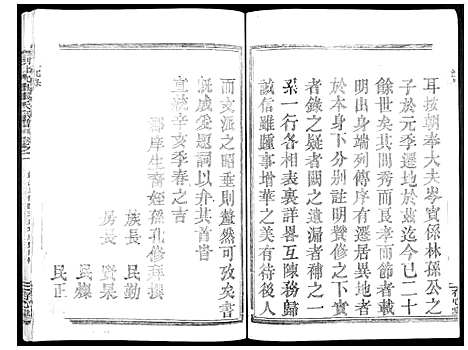 耳按朝奉大夫岑賓係林孫公之
子於元季遷地於茲迄今已二十
餘世矣其間秀而良孝而節必註
明出身端列傳序有遷居異地者
於本身下分別註明贊修之下實
者錄之疑者闕之遺漏者補之一
系一行各相表裏詳畧互陳務歸
誠信雖踵事增華之美有待後人
而支派之昭垂則釐然可攷矣書
既成爰題詞以弁其首耑
宣統辛亥季春之吉
郡庠生裔姪孫孔修拜撰
族長 民勤
房長 賢杲
民爍
民正